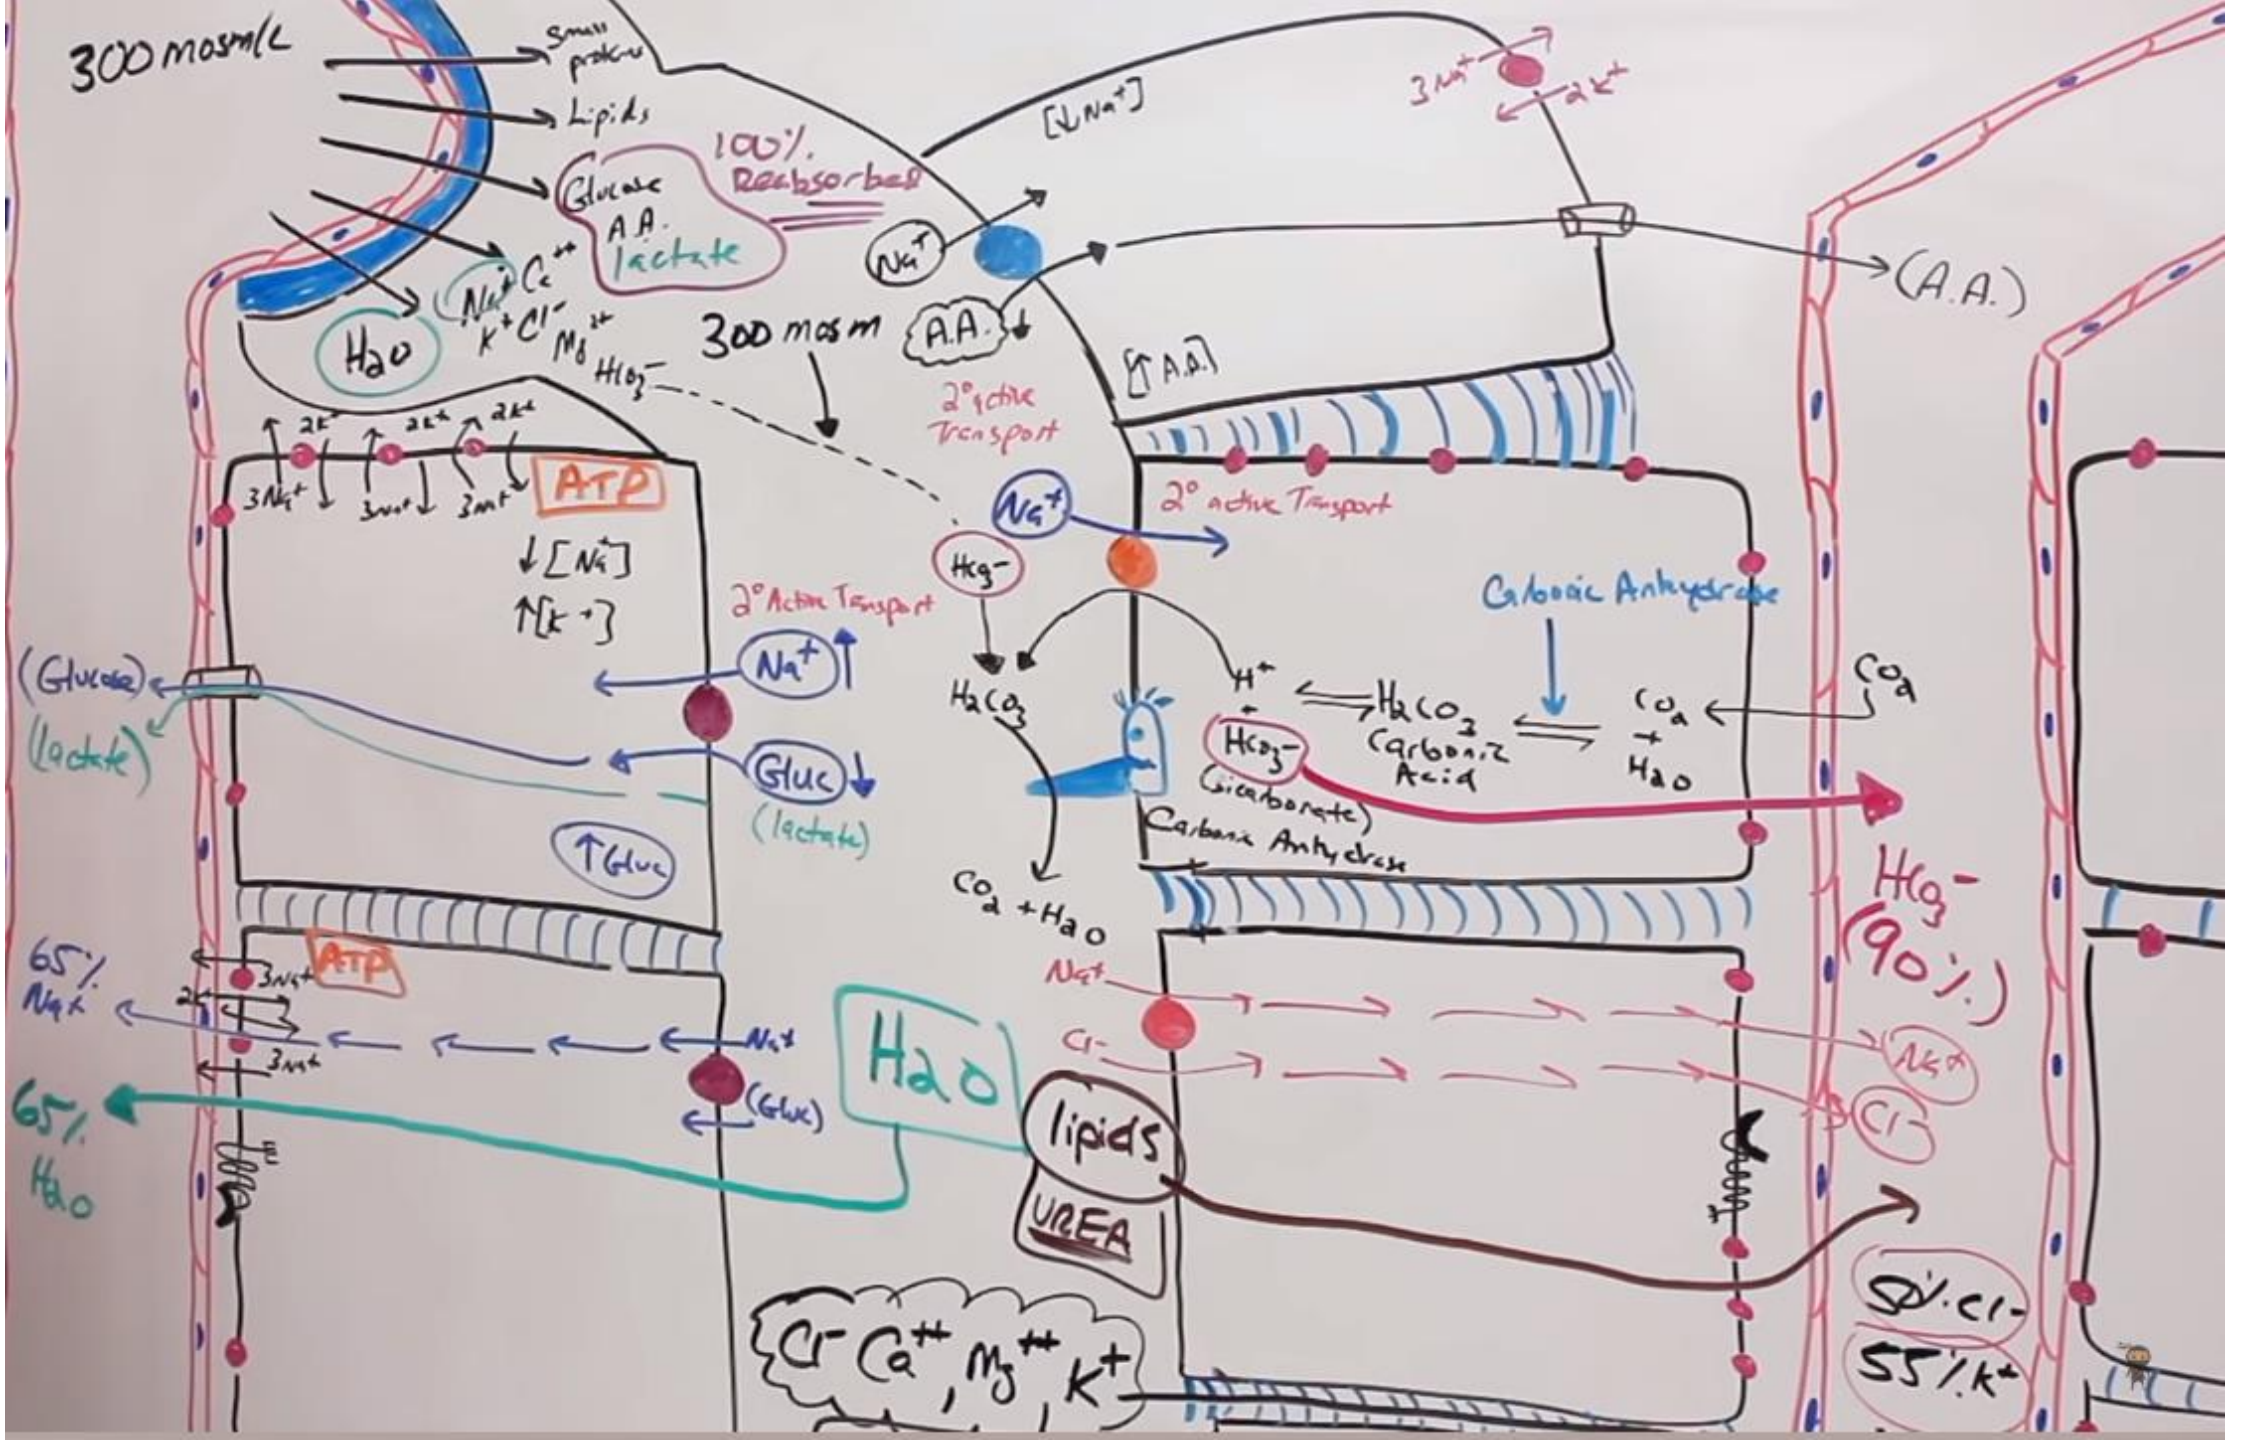 300 mosm/L
Small
Lipids
Glucose
A.A.
lactate
100%
Reabsorbed
Na+ Ca++
K+ Cl-
Mg2+
HCO3-
H2O
300 mosm
Na+
A.A. ↓
[↓Na+]
3Na+
2K+
(A.A.)
[↑A.A.]
2° active
Transport
2K+ 2K+ 2K+
3Na+ 3Na+ 3Na+
ATP
↓[Na+]
↑[K+]
2° Active Transport
Na+ ↑
Gluc ↓
(lactate)
(Glucose)
(lactate)
↑Gluc
Na+
2° active Transport
HCO3-
H2CO3
CO2 + H2O
Carbonic Anhydrase
H+
+
HCO3-
(Bicarbonate)
H2CO3
Carbonic
Acid
CO2
+
H2O
CO2
Carbonic Anhydrase
HCO3-
(90%)
65%
Na+
ATP
3Na+
3Na+
Na+
(Gluc)
65%
H2O
H2O
Na+
Cl-
Na+
Cl-
lipids
UREA
Cl- Ca++, Mg++, K+
50% Cl-
55% K+